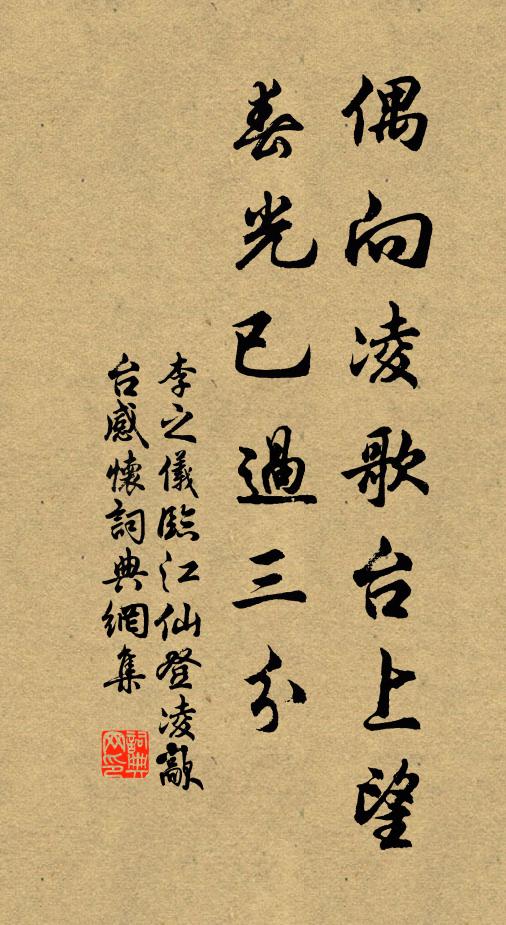 偶向凌歌台上望
春光已過三分
李之儀臨江仙登凌歊
台感懷詞典網集
詞典
网印